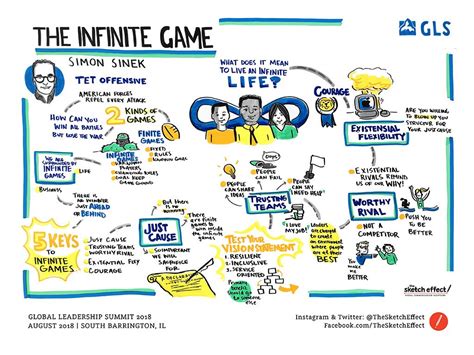 THE INFINITE GAME
SIMON SINEK
GLS
TET OFFENSIVE
AMERICAN FORCES
REPEL EVERY ATTACK
HOW CAN YOU
WIN ALL BATTLES
BUT LOSE THE WAR
2 KINDS OF
GAMES
FINITE
GAMES
RULES
INFINITE
GAMES
KEEP
GAME GOING
WE ARE
SURROUNDED BY
INFINITE
GAMES
LIFE
BUSINESS
THERE IS
NO WINNER
JUST AHEAD
OR
BEHIND
WHAT DOES IT MEAN
TO LIVE AN INFINITE
LIFE?
COURAGE
ARE YOU WILLING
TO BLOW UP YOUR
STRUCTURE FOR
YOUR JUST CAUSE
EXISTENSIAL
FLEXIBILITY
EXISTENTIAL
RIVALS REMIND
US OF OUR WHY!
WORTHY
RIVAL
NOT A
COMPETITOR
PUSH YOU TO
BE BETTER
PEOPLE
CAN FAIL
PEOPLE
CAN SHARE
IDEAS
PEOPLE
CAN SAY
I NEED
HELP
TRUSTING
TEAMS
LEADERS
ARE FORCED
TO CREATE
AN
ENVIRONMENT
WHERE PEOPLE
CAN BE
AT THEIR
BEST
5 KEYS
TO
INFINITE
GAMES
JUST CAUSE
TRUSTING TEAMS
WORTHY RIVAL
EXISTENTIAL FLEX
COURAGE
JUST
CAUSE
SO IMPORTANT
WE WILL
SACRIFICE
FOR IT
MAKE
PEOPLE
FEEL
VALUABLE
TEST YOUR
VISION STATEMENT
RESILIENT
INCLUSIVE
SERVICE
ORIENTED
the sketch effect/
GLOBAL LEADERSHIP SUMMIT 2018
AUGUST 2018 | SOUTH BARRINGTON, IL
Instagram & Twitter: @TheSketchEffect
Facebook.com/TheSketchEffect